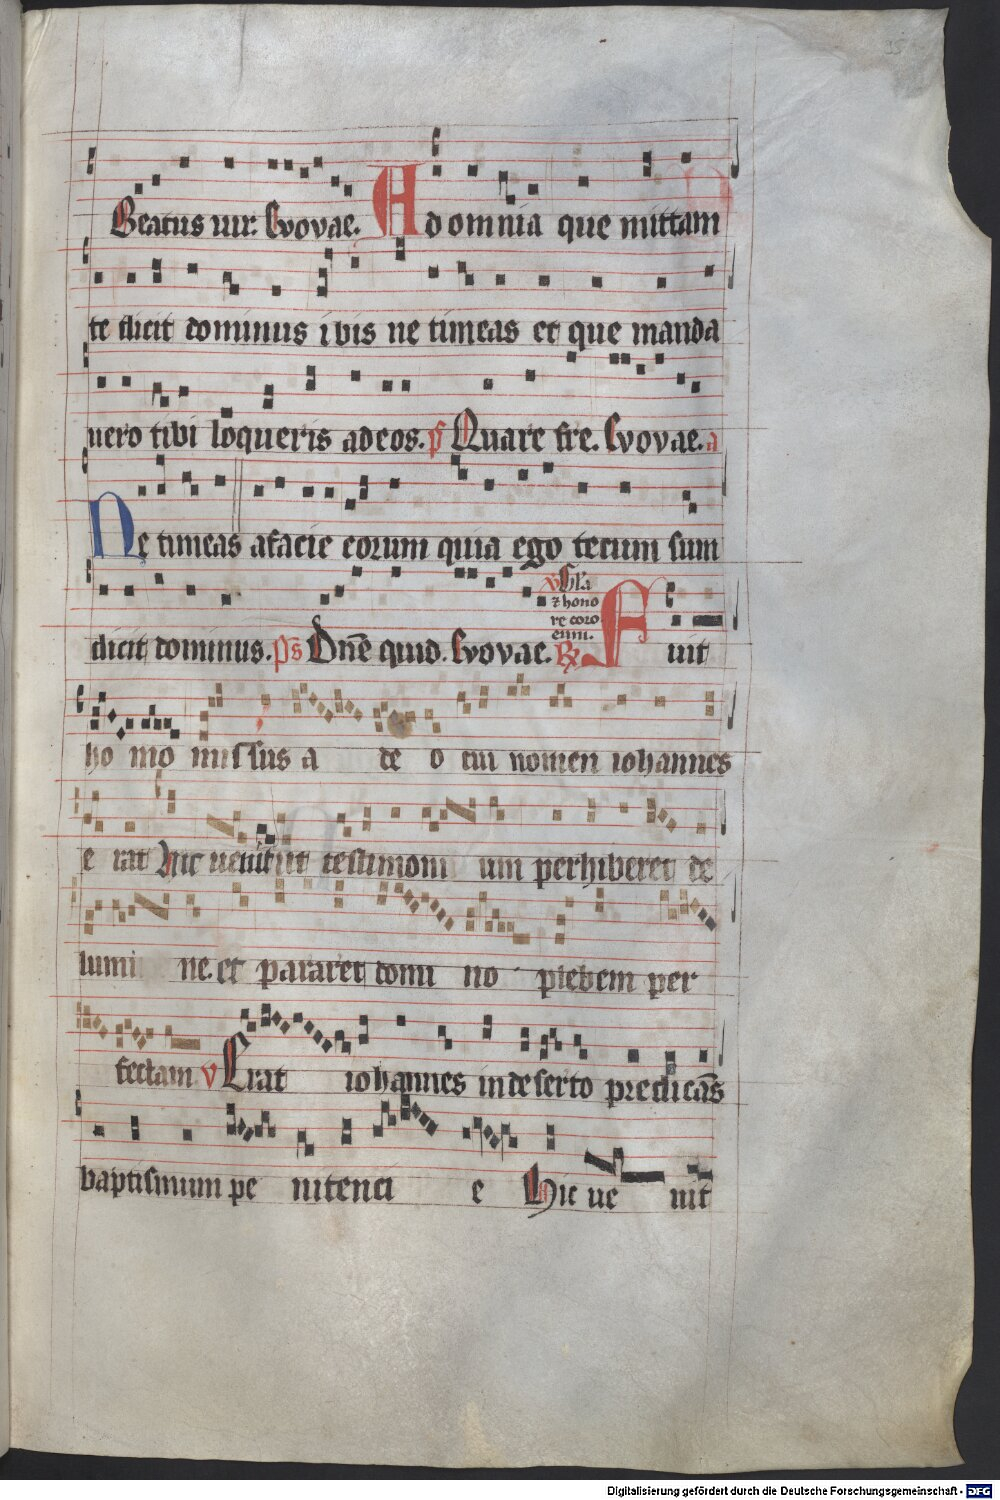 35
Beatus uir. Evovae. Ad omnia que mittam
te dicit dominus ibis ne timeas et que manda
uero tibi loqueris ad eos. ps Quare fre. Evovae. a
Ne timeas afacie eorum quia ego tecum sum
dicit dominus. ps Dne quid. Evovae. R Fuit
v Gla
et hono
re coro
eum.
ho mo missus a de o cui nomen iohannes
e rat hic uenit ut testimoni um perhiberet de
lumi ne. et pararet domi no plebem per
fectam v Erat iohannes in deserto predicas
baptismum pe nitenci e Hic ue nit
Digitalisierung gefördert durch die Deutsche Forschungsgemeinschaft - DFG